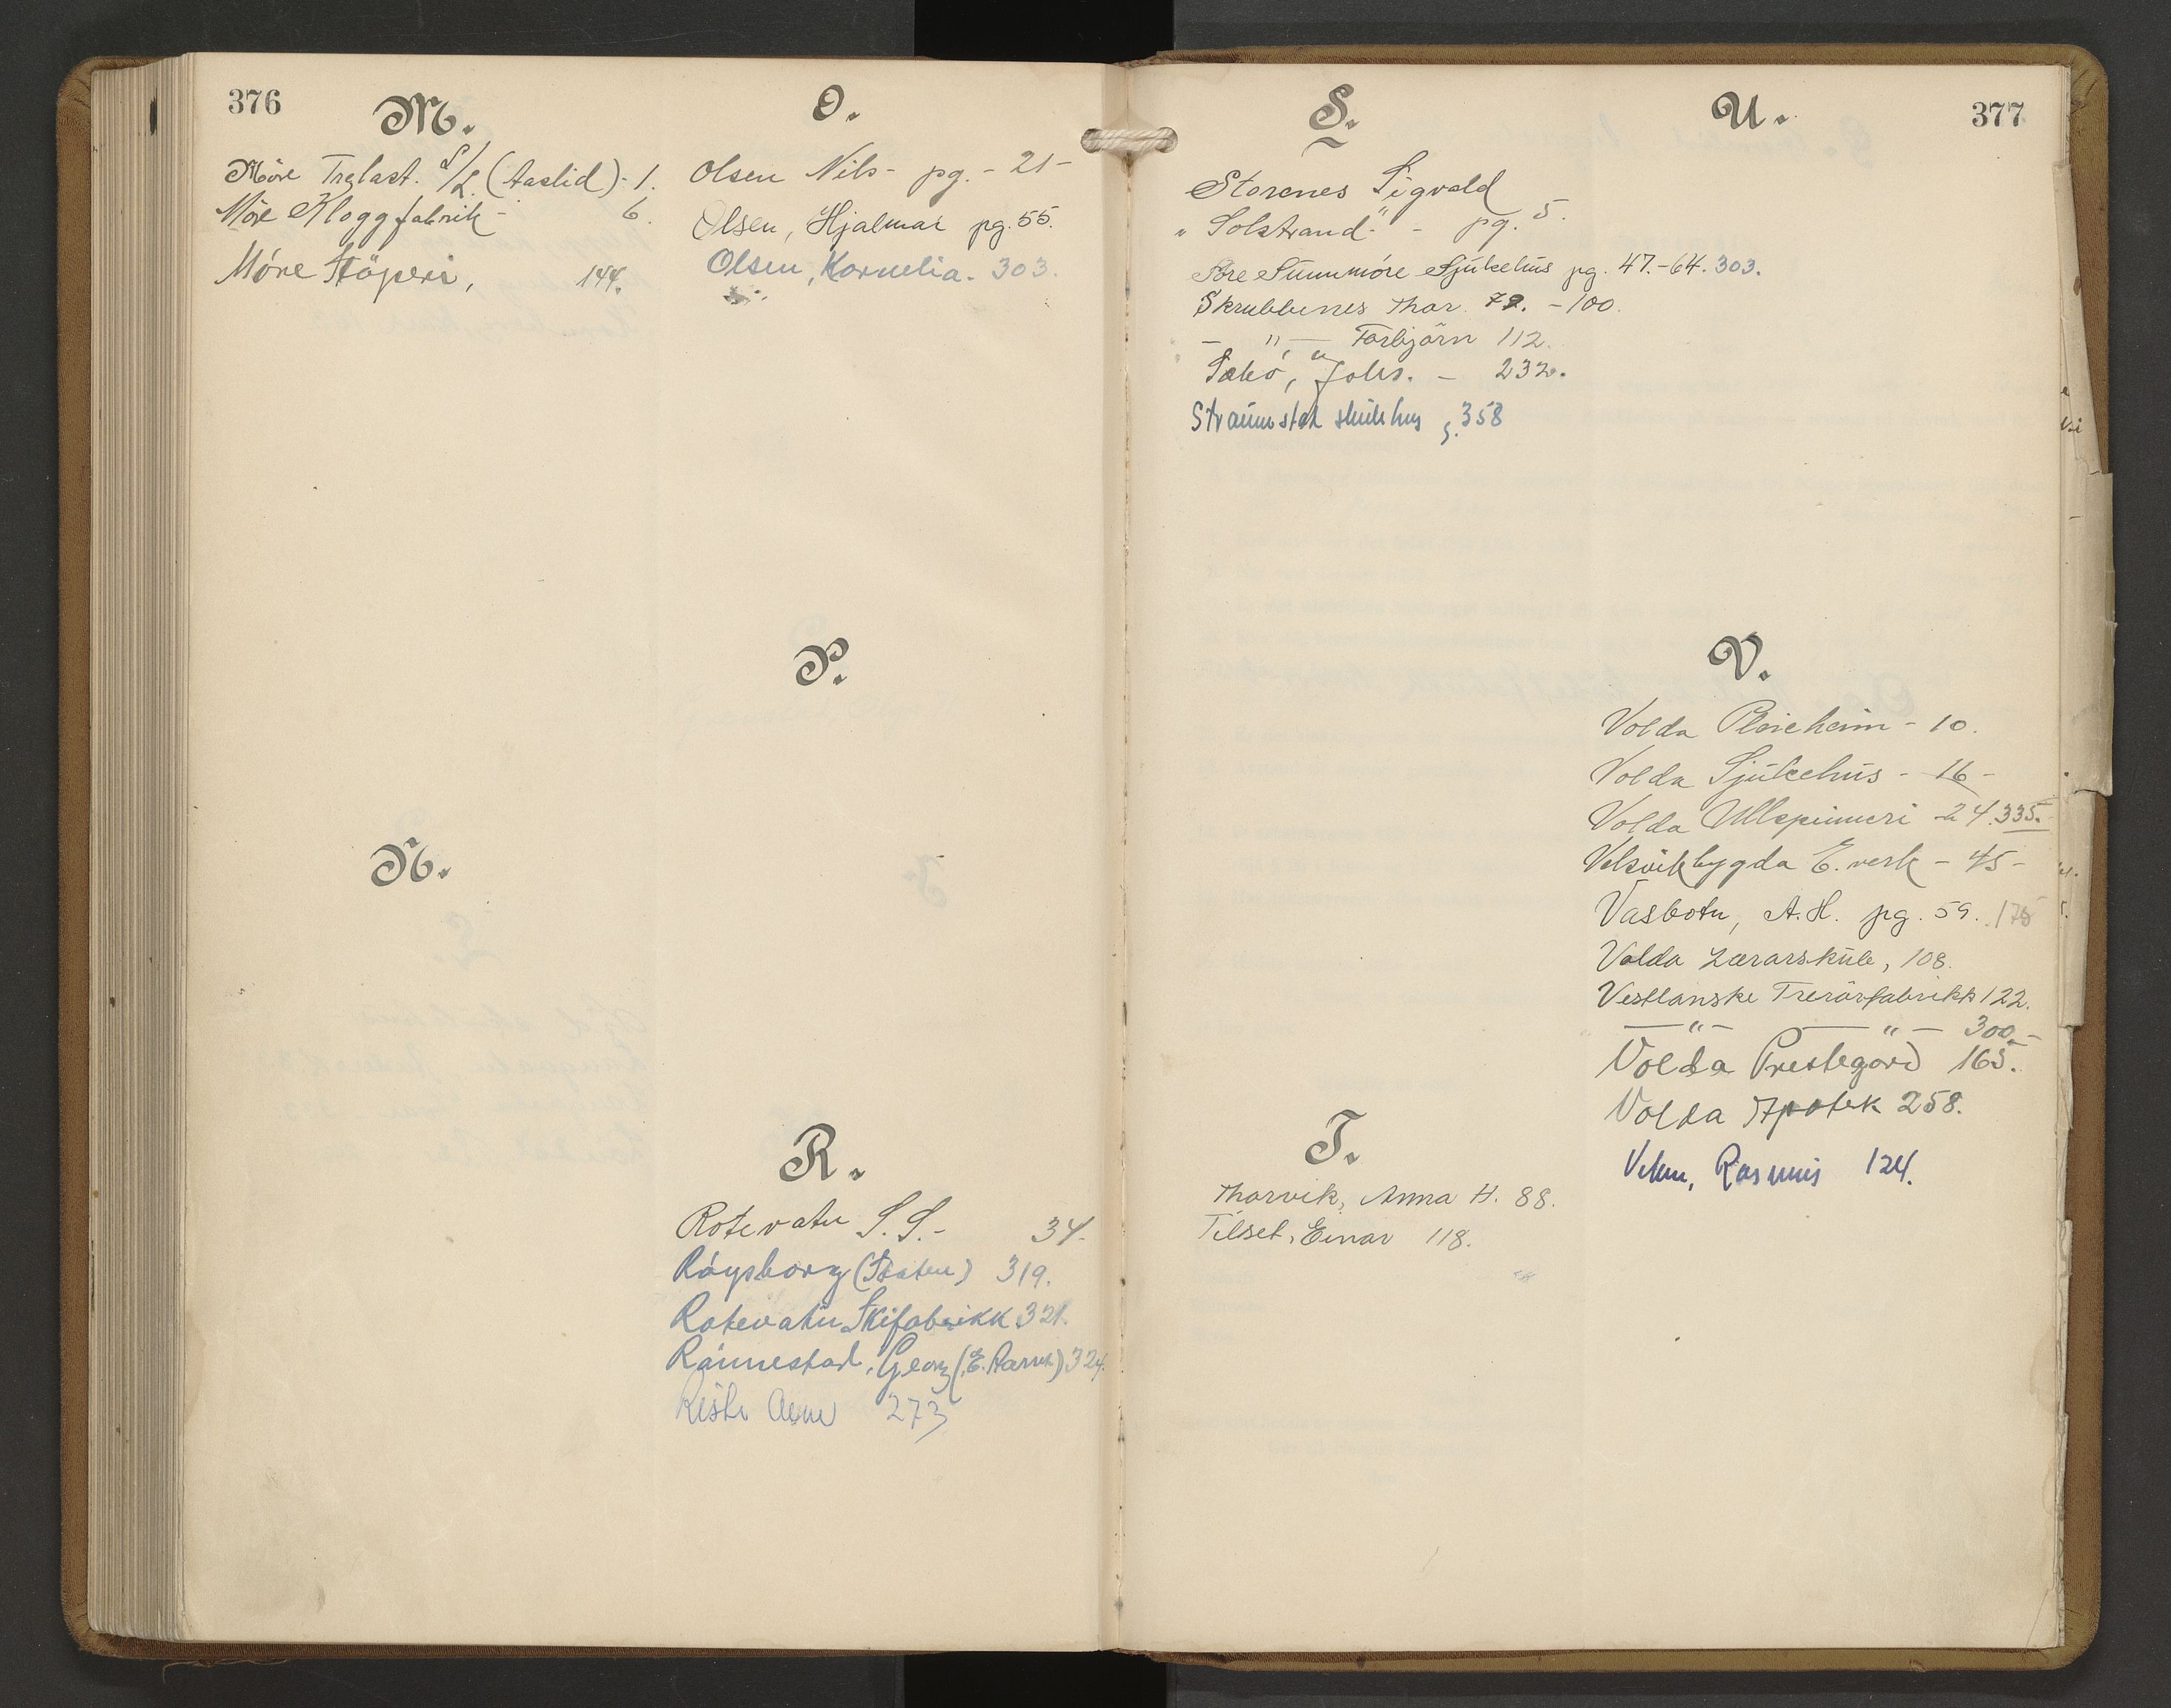 376
M.
Móre Trelast. S/L. (Aaslid) - 1.
Móre Kloggfabrik - 6.
Móre Stöperi, 144.
N.
O.
Olsen Nils - pg. - 21 -
Olsen, Hjalmar pg. 55.
Olsen, Kornelia. 303.
P.
R.
Rotevatn S. S. - 34.
Róysborg (Staten) 319.
Rotevatn Skifabrikk 321.
Rónnestad, Georg (E. 324.
Riste 273
S.
Storenes Sigvald
" Solstrand" - pg. 5.
Søre Sunnmóre Sjukehus pg. 47.-64. 303.
Skrubbenes Thor. 72. - 100.
- " - Torbjörn 112.
Sæbó, Johs. - 232.
Straumshak skulehus s. 358
T.
Thorvik, Anna H. 88.
Tilset, Einar 118.
377
U.
V.
Volda Pleieheim - 10.
Volda Sjukehus - 16 -
Volda Ullspinneri - 24. 335.
Velsvikbygda E. verk - 45 -
Vasbotn, A. H. pg. 59. 175
Volda Lærarskule, 108.
Vestlanske Trerörfabrikk 122.
- " - - " - 300. -
Volda Prestegard 165.
Volda Apotek 258.
Rasmus 124.